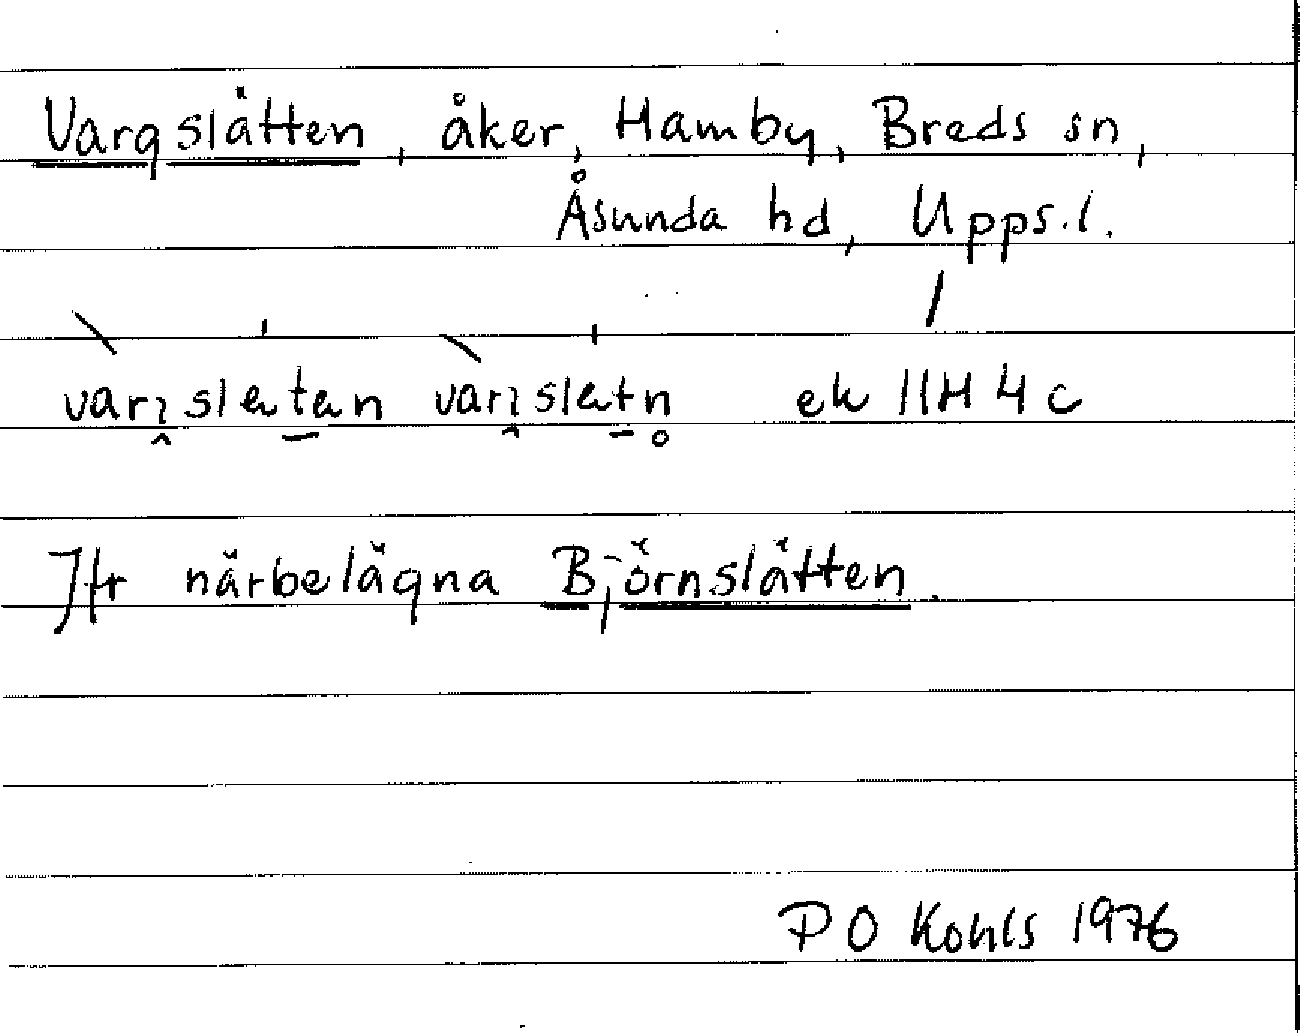 Vargslätten, åker, Hamby, Breds sn,
Åsunda hd, Upps.l.
ek 11H 4c
Jfr närbelägna Björnslätten.
P O Kohls 1976